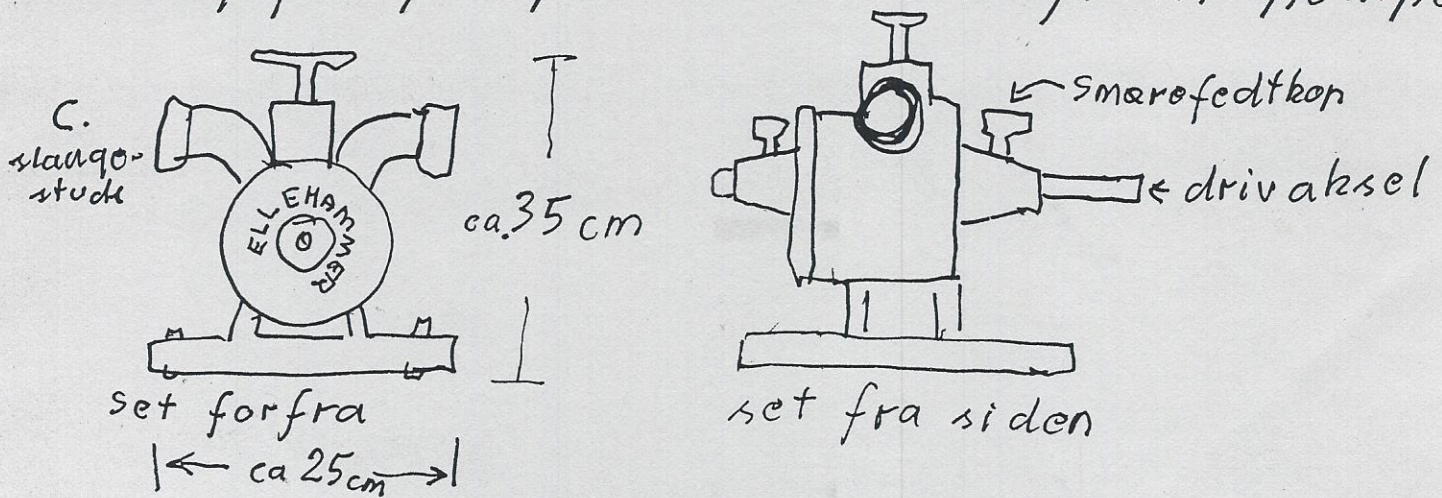 C.
slange-
studs
ELLEHAMMER
ca. 35 cm
set forfra
ca 25 cm
smørefedtkop
drivaksel
set fra siden